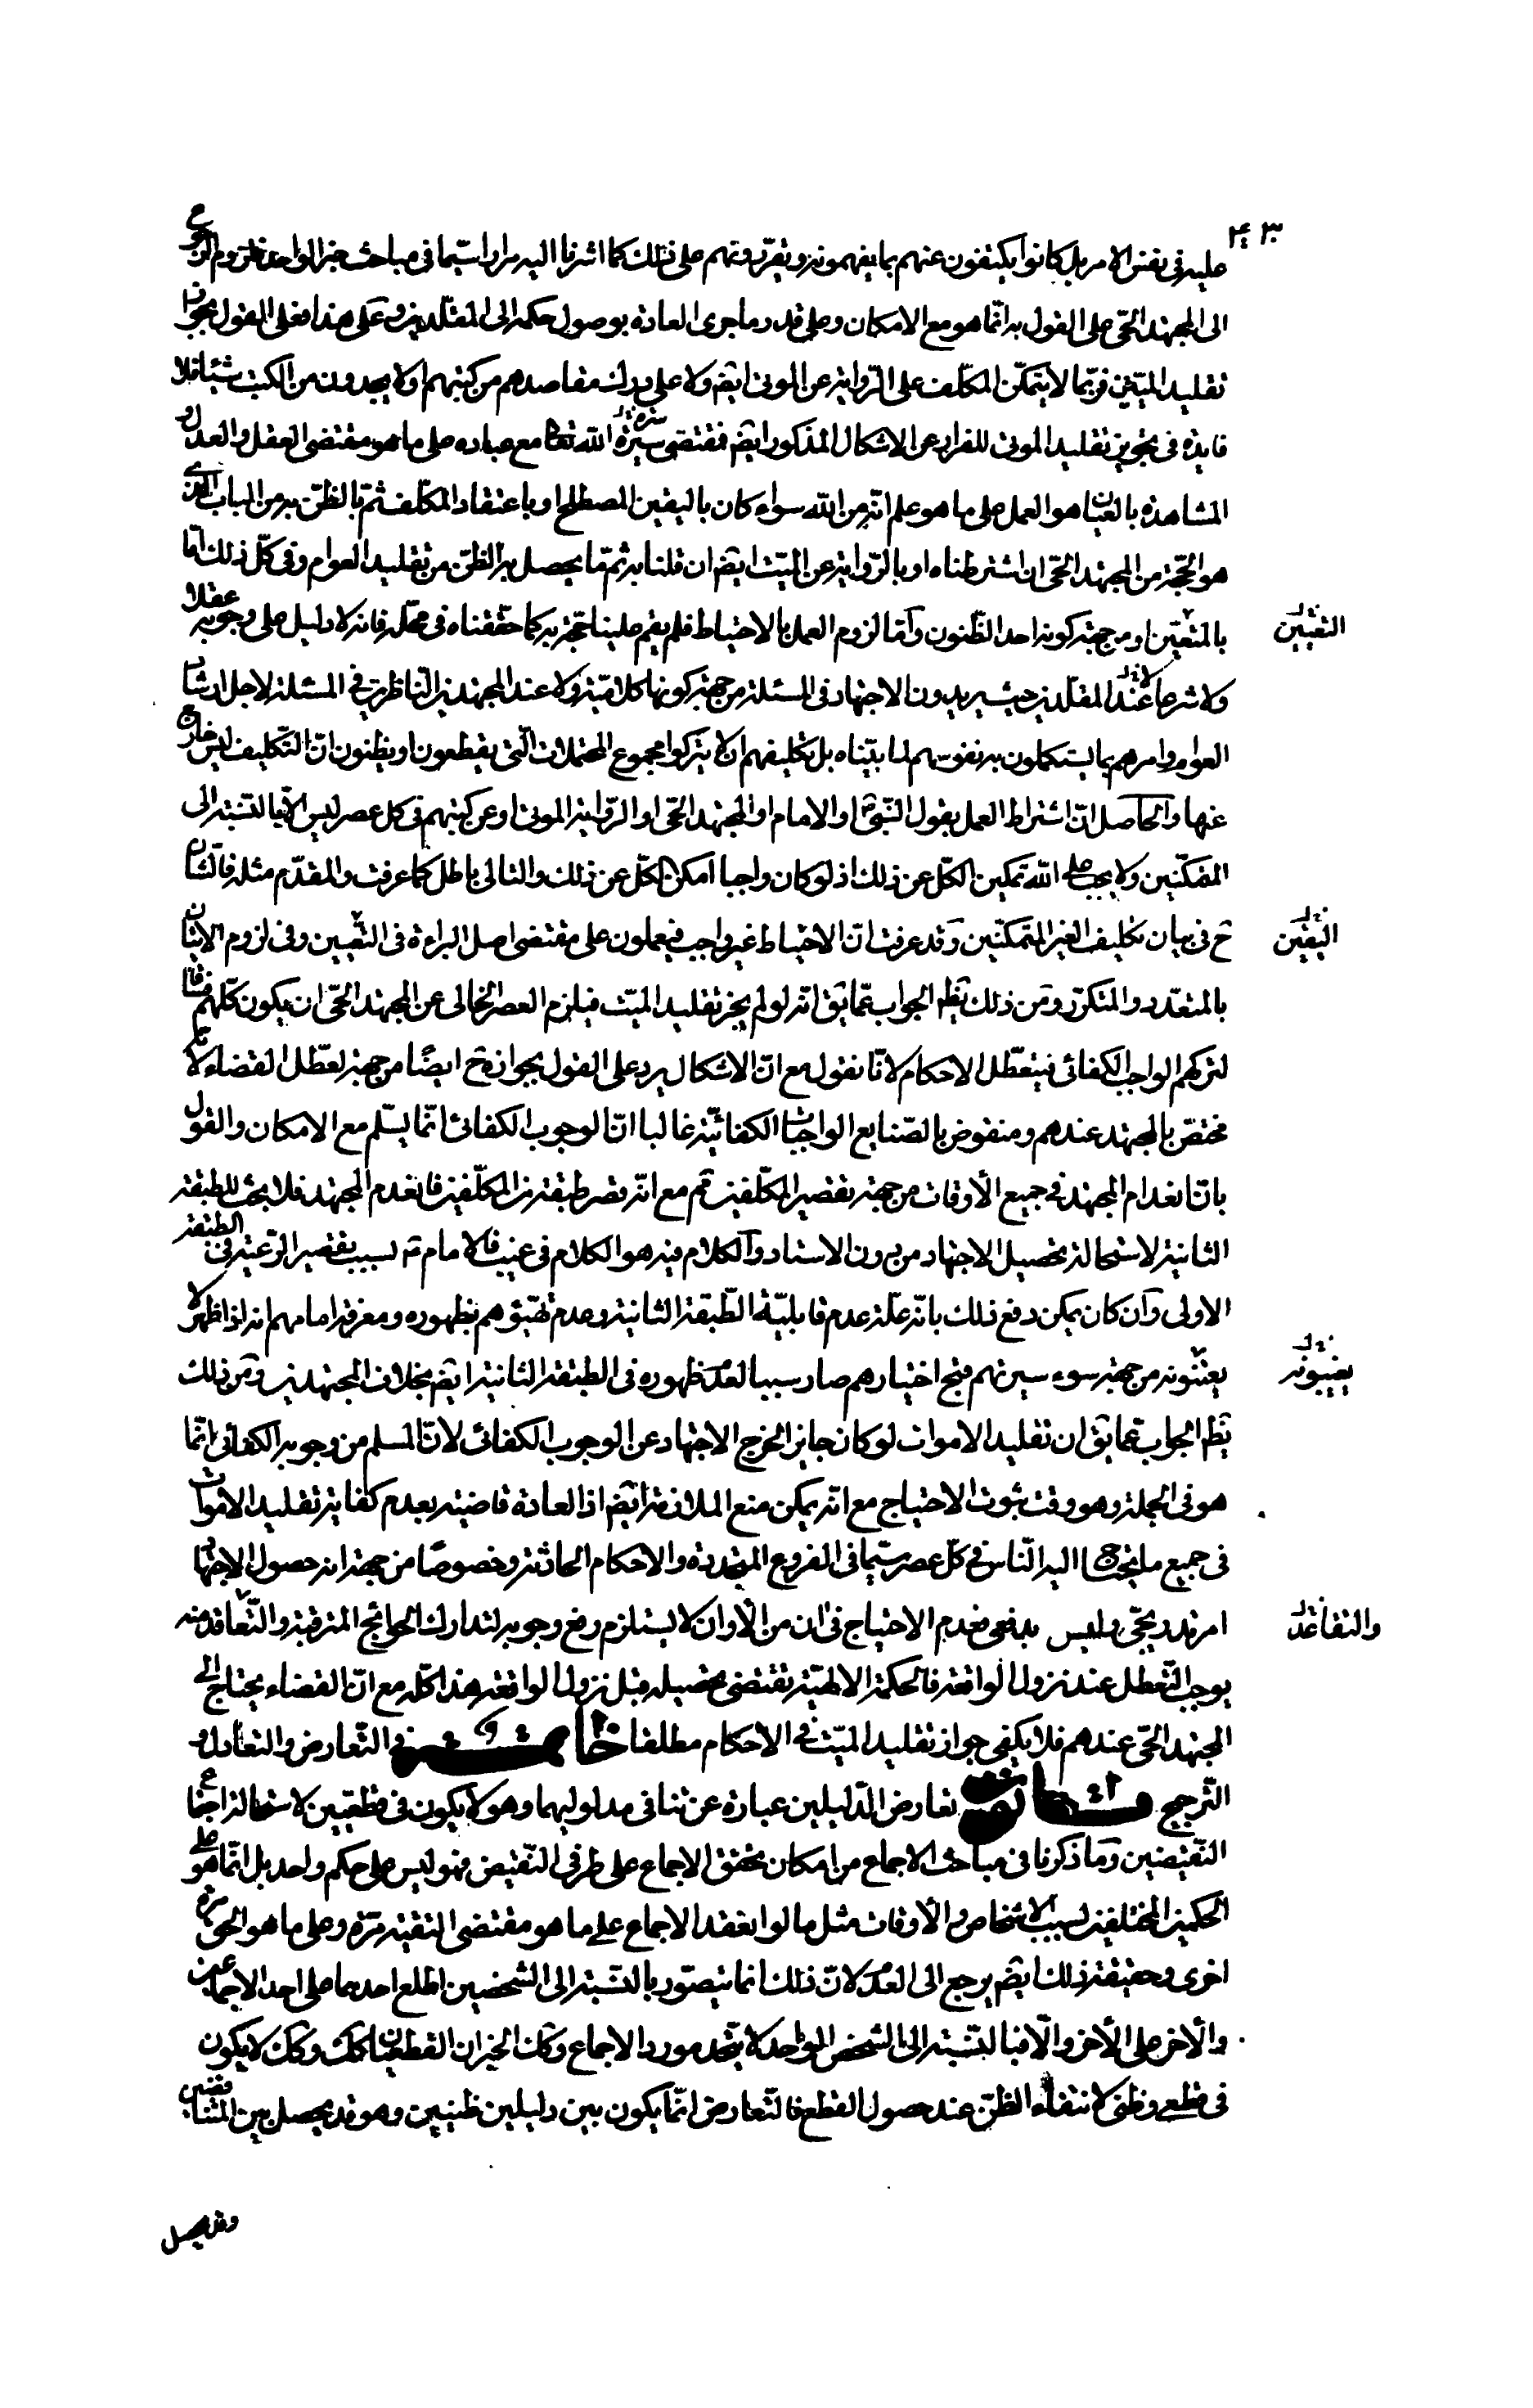 ۴۳۰
عليه فى نفس الامر بل كانوا يكتفون عنهم بما يفهمونه ويقرّرونهم على ذلك كما اشرنا اليه مرارا سيّما فى مباحث خبر الواحد فلزوم الرجوع
الى المجتهد الحىّ على القول به انّما هو مع الامكان وعلى قدر ما جرى العادة بوصول حكمه الى المقلّدين وعلى هذا فعلى القول بجواز
تقليد الميّتين فربّما لا يتمكّن المكلّف على الرّواية عن الموتى ايضم ولا على درك مقاصدهم من كتبهم او لا يجدون من الكتب شيئا فلا
فايدة فى تجويز تقليد الموتى للفرار عن الاشكال المذكور ايضم فمقتضى سيرة الله تعا مع عباده على ما هو مقتضى العقل والعدل و
المشاهدة بالعيان هو العمل على ما هو علم انّه من الله سواء كان باليقين المصطلح او باعتقاد المكلّف ثمّ بالظنّ به من الباب الذى
هو الحجّة من المجتهد الحىّ ان اشترطناه او بالرّواية عن الميّت ايضم ان قلنا به ثمّ ما يحصل به الظنّ من تقليد العوام وفى كلّ ذلك امّا
بالمتعيّن او من جهة كونه احد الظّنون وامّا لزوم العمل بالاحتياط فلم يقم علينا حجّة به كما حقّقناه فى محلّه فانه لا دليل على وجوبه عقلا
التعيين
ولا شرعا لا عند المقلّدين حيث يريدون الاجتهاد فى المسئلة من جهة كونها كلاميّة ولا عند المجتهدين النّاظرين فى المسئلة لاجل ارشاد
العوام وامرهم بما يستكملون به نفوسهم لما بيّنّاه بل تكليفهم ان لا يتركوا مجموع المحتملات الّتى يقطعون او يظنون انّ التّكليف ليس خارج
عنها والحاصل انّ اشتراط العمل بقول النّبىّ او الامام او المجتهد الحىّ او الرّواية الموتى او عن كتبهم فى كل عصر ليس الّا بالنّسبة الى
المتمكّنين ولا يجب على الله تمكين الكلّ عن ذلك اذ لو كان واجبا امكن الكلّ عن ذلك والتالى باطل كما عرفت والمقدّم مثله فالشان
ح فى بيان تكليف الغير المتمكّنين وقد عرفت انّ الاحتياط غير واجب فيعملون على مقتضى اصل البراءة فى التّعيين وفى لزوم الاتيان
اليقين
بالمتعدد والمتكرّر ومن ذلك يظهر الجواب عمّا يق انّه لو لم يجز تقليد الميّت فيلزم العصر الخالى عن المجتهد الحىّ ان يكون كلّهم فسّاقا
لتركهم الواجب الكفائى فيتعطّل الاحكام لانّا نقول مع انّ الاشكال يرد على القول بجوازه ح ايضًا من جهة تعطّل القضاء لانه
مختصّ بالمجتهد عندهم ومنقوض بالصّنايع الواجبات الكفائيّة غالبا انّ الوجوب الكفائى انّما يسّلم مع الامكان والقول
بانّ انعدام المجتهد فى جميع الأوقات من جهة تقصير المكلّفين ثم مع انّه تقصر طبقة من المكلّفين فانعدم المجتهد فلا بحث للطبقة
الثانية لاستحالة تحصيل الاجتهاد من دون الاستاد والكلام فيه هو الكلام فى غيبة الامام ع بسبب تقصير الرّعيّة فى الطبقة
الاولى وان كان يمكن دفع ذلك بانّه علّة عدم قابليّة الطّبقة الثانية وعدم تهيّؤهم بظهوره ومعرفة امامهم انه اذا ظهر لا
يعتنونه من جهة سوء سيرتهم وقبح اختيارهم صار سببا لعدم ظهوره فى الطبقة الثانية ايضم بخلاف المجتهدين ومن ذلك
يغيبونه
يظهر الجواب عما يق ان تقليد الاموات لو كان جايزا لخرج الاجتهاد عن الوجوب الكفائى لانّ المسلم من وجوبه الكفائى انّما
هو فى الجملة وهو وقت ثبوت الاحتياج مع انّه يمكن منع الملازمة ايضم اذ العادة قاضية بعدم كفاية تقليد الاموات
فى جميع ما يحتاج اليه النّاس فى كلّ عصر سيّما فى الفروع المتجددة والاحكام الحادثة وخصوصًا من جهة انه حصول الاجتهاد
امر تدريجىّ وليس بدفعى فعدم الاحتياج فى ان من الأوان لا يستلزم رفع وجوبه لتدارك الحوائج المترقبة والتّعاقد منه
والتقاعد
يوجب التّعطل عند نزول الواقعة فالحكمة الالهيّة تقتضى تحصيله قبل نزول الواقعة هذا كلّه مع انّ القضاء يحتاج الى
المجتهد الحىّ عندهم فلا يكفى جواز تقليد الميّت فى الاحكام مطلقا خاتمة فى التّعارض والتعادل و
التّرجيح تعارض الدّليلين عبارة عن تنافى مدلوليهما وهو لا يكون فى قطعيّين لاستحالة اجتماع
النّقيضين وما ذكرنا فى مباحث الاجماع من امكان تحقق الاجماع على طرفى النّقيض فهو ليس على حكم واحد بل انّما هو على
الحكمين المختلفين بسبب الاشخاص والأوقات مثل ما لو انعقد الاجماع على ما هو مقتضى التقيّة مرّة وعلى ما هو الحق مرّة
اخرى وحقيقة ذلك ايضم يرجع الى العدم لانّ ذلك انما يتصوّر بالنّسبة الى الشخصين اطلع احدهما على احد الاجماعين
والآخر على الآخر والّا فبالنّسبة الى الشخص الواحد لا يتّحد مورد الاجماع وكذا الخبران القطعيّان كذلك وكذا لا يكون
فى قطعى وظنى لانتفاء الظنّ عند حصول القطع فالتّعارض انّما يكون بين دليلين ظنيين وهو قد يحصل بين المتناقضين
وقد يحصل